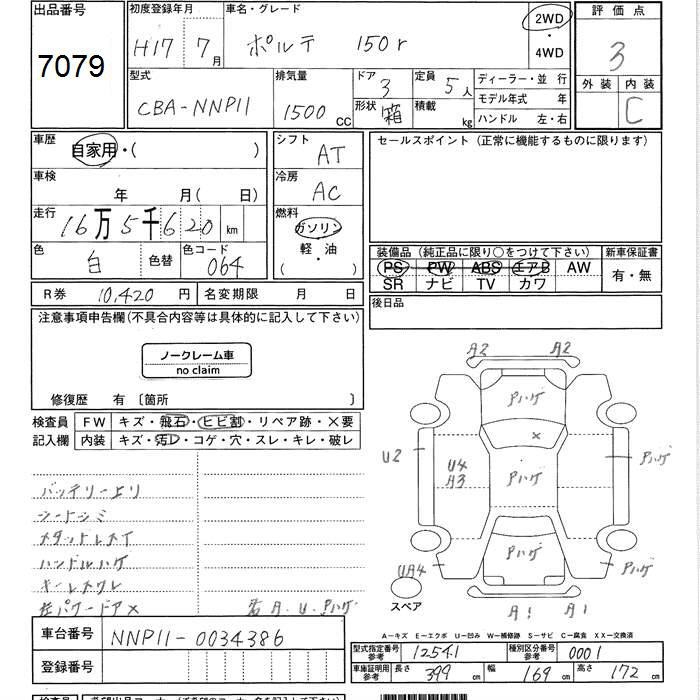 出品番号
7079
初度登録年月
H17 7月
車名・グレード
ポルテ 150r
2WD
・
4WD
評価点
3
外装 内装
C
型式
CBA-NNP11
排気量
1500 CC
ドア 3
形状 箱
定員 5人
積載 kg
ディーラー・並行
モデル年式 年
ハンドル 左・右
車歴
自家用・( )
車検
年 月(日)
走行
16万5千620 km
色
白
色替
色コード
064
シフト
AT
冷房
AC
燃料
ガソリン
軽・油
( )
セールスポイント(正常に機能するものに限ります)
装備品(純正品に限り○をつけて下さい)
PS PW ABS エアB AW
SR ナビ TV カワ
新車保証書
有・無
R券 10,420円
名変期限 月 日
後日品
注意事項申告欄(不具合内容等は具体的に記入して下さい)
ノークレーム車
no claim
修復歴 有〔箇所 〕
検査員
記入欄
FW キズ・飛石・ヒビ割・リペア跡・×要
内装 キズ・汚レ・コゲ・穴・スレ・キレ・破レ
バッテリー上り
シートシミ
ハンドルハゲ
左パワードア×
各A.U.Pハゲ
A2 A2
Pハゲ
×
U2
U4
A3
Pハゲ
Pハゲ
Pハゲ
Pハゲ
UA4
スペア
A1 A1
A-キズ E-エクボ U-凹み W-補修跡 S-サビ C-腐食 XX-交換済
車台番号 NNP11-0034386
登録番号
型式指定番号
参考
12541
種別区分番号
参考
0001
車庫証明用
参考
長さ 399 cm
幅 169 cm
高さ 172 cm